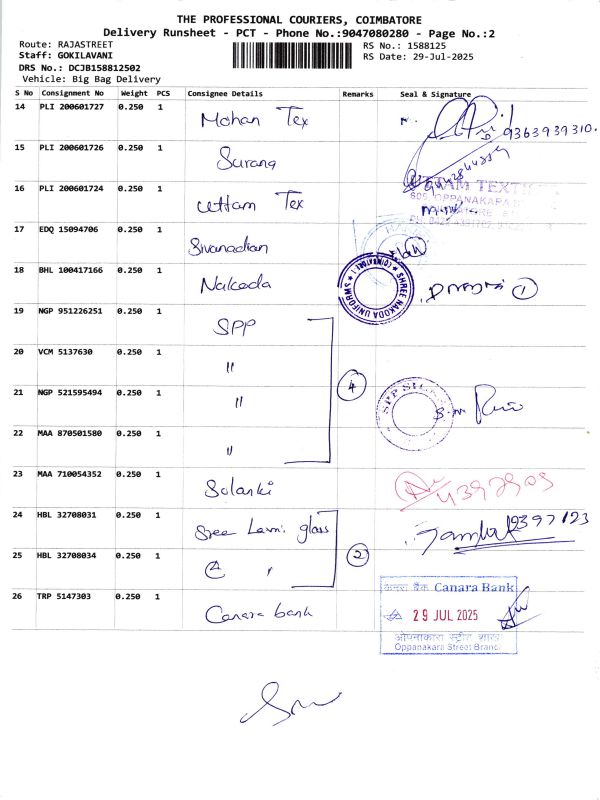 THE PROFESSIONAL COURIERS, COIMBATORE
Delivery Runsheet - PCT - Phone No.:9047080280 - Page No.:2
Route: RAJASTREET
RS No.: 1588125
Staff: GOKILAVANI
RS Date: 29-Jul-2025
DRS No.: DCJB158812502
Vehicle: Big Bag Delivery
S No Consignment No Weight PCS Consignee Details Remarks Seal & Signature
14 PLI 200601727 0.250 1 Mohan Tex 9363939310.
15 PLI 200601726 0.250 1 Surana
16 PLI 200601724 0.250 1 Uttam Tex
17 EDQ 15094706 0.250 1 Sivanadian
18 BHL 100417166 0.250 1 Nakoda SHREE NAKODA UNIFORMS 1
19 NGP 951226251 0.250 1 SPP
20 VCM 5137630 0.250 1 "
21 NGP 521595494 0.250 1 " 4
22 MAA 870501580 0.250 1 "
23 MAA 710054352 0.250 1 Solanki
24 HBL 32708031 0.250 1 Sree Laxmi glass
25 HBL 32708034 0.250 1 2
26 TRP 5147303 0.250 1 Canara bank
केनरा बैंक Canara Bank
29 JUL 2025
ओपनाकारा स्ट्रीट शाखा
Oppanakara Street Branch